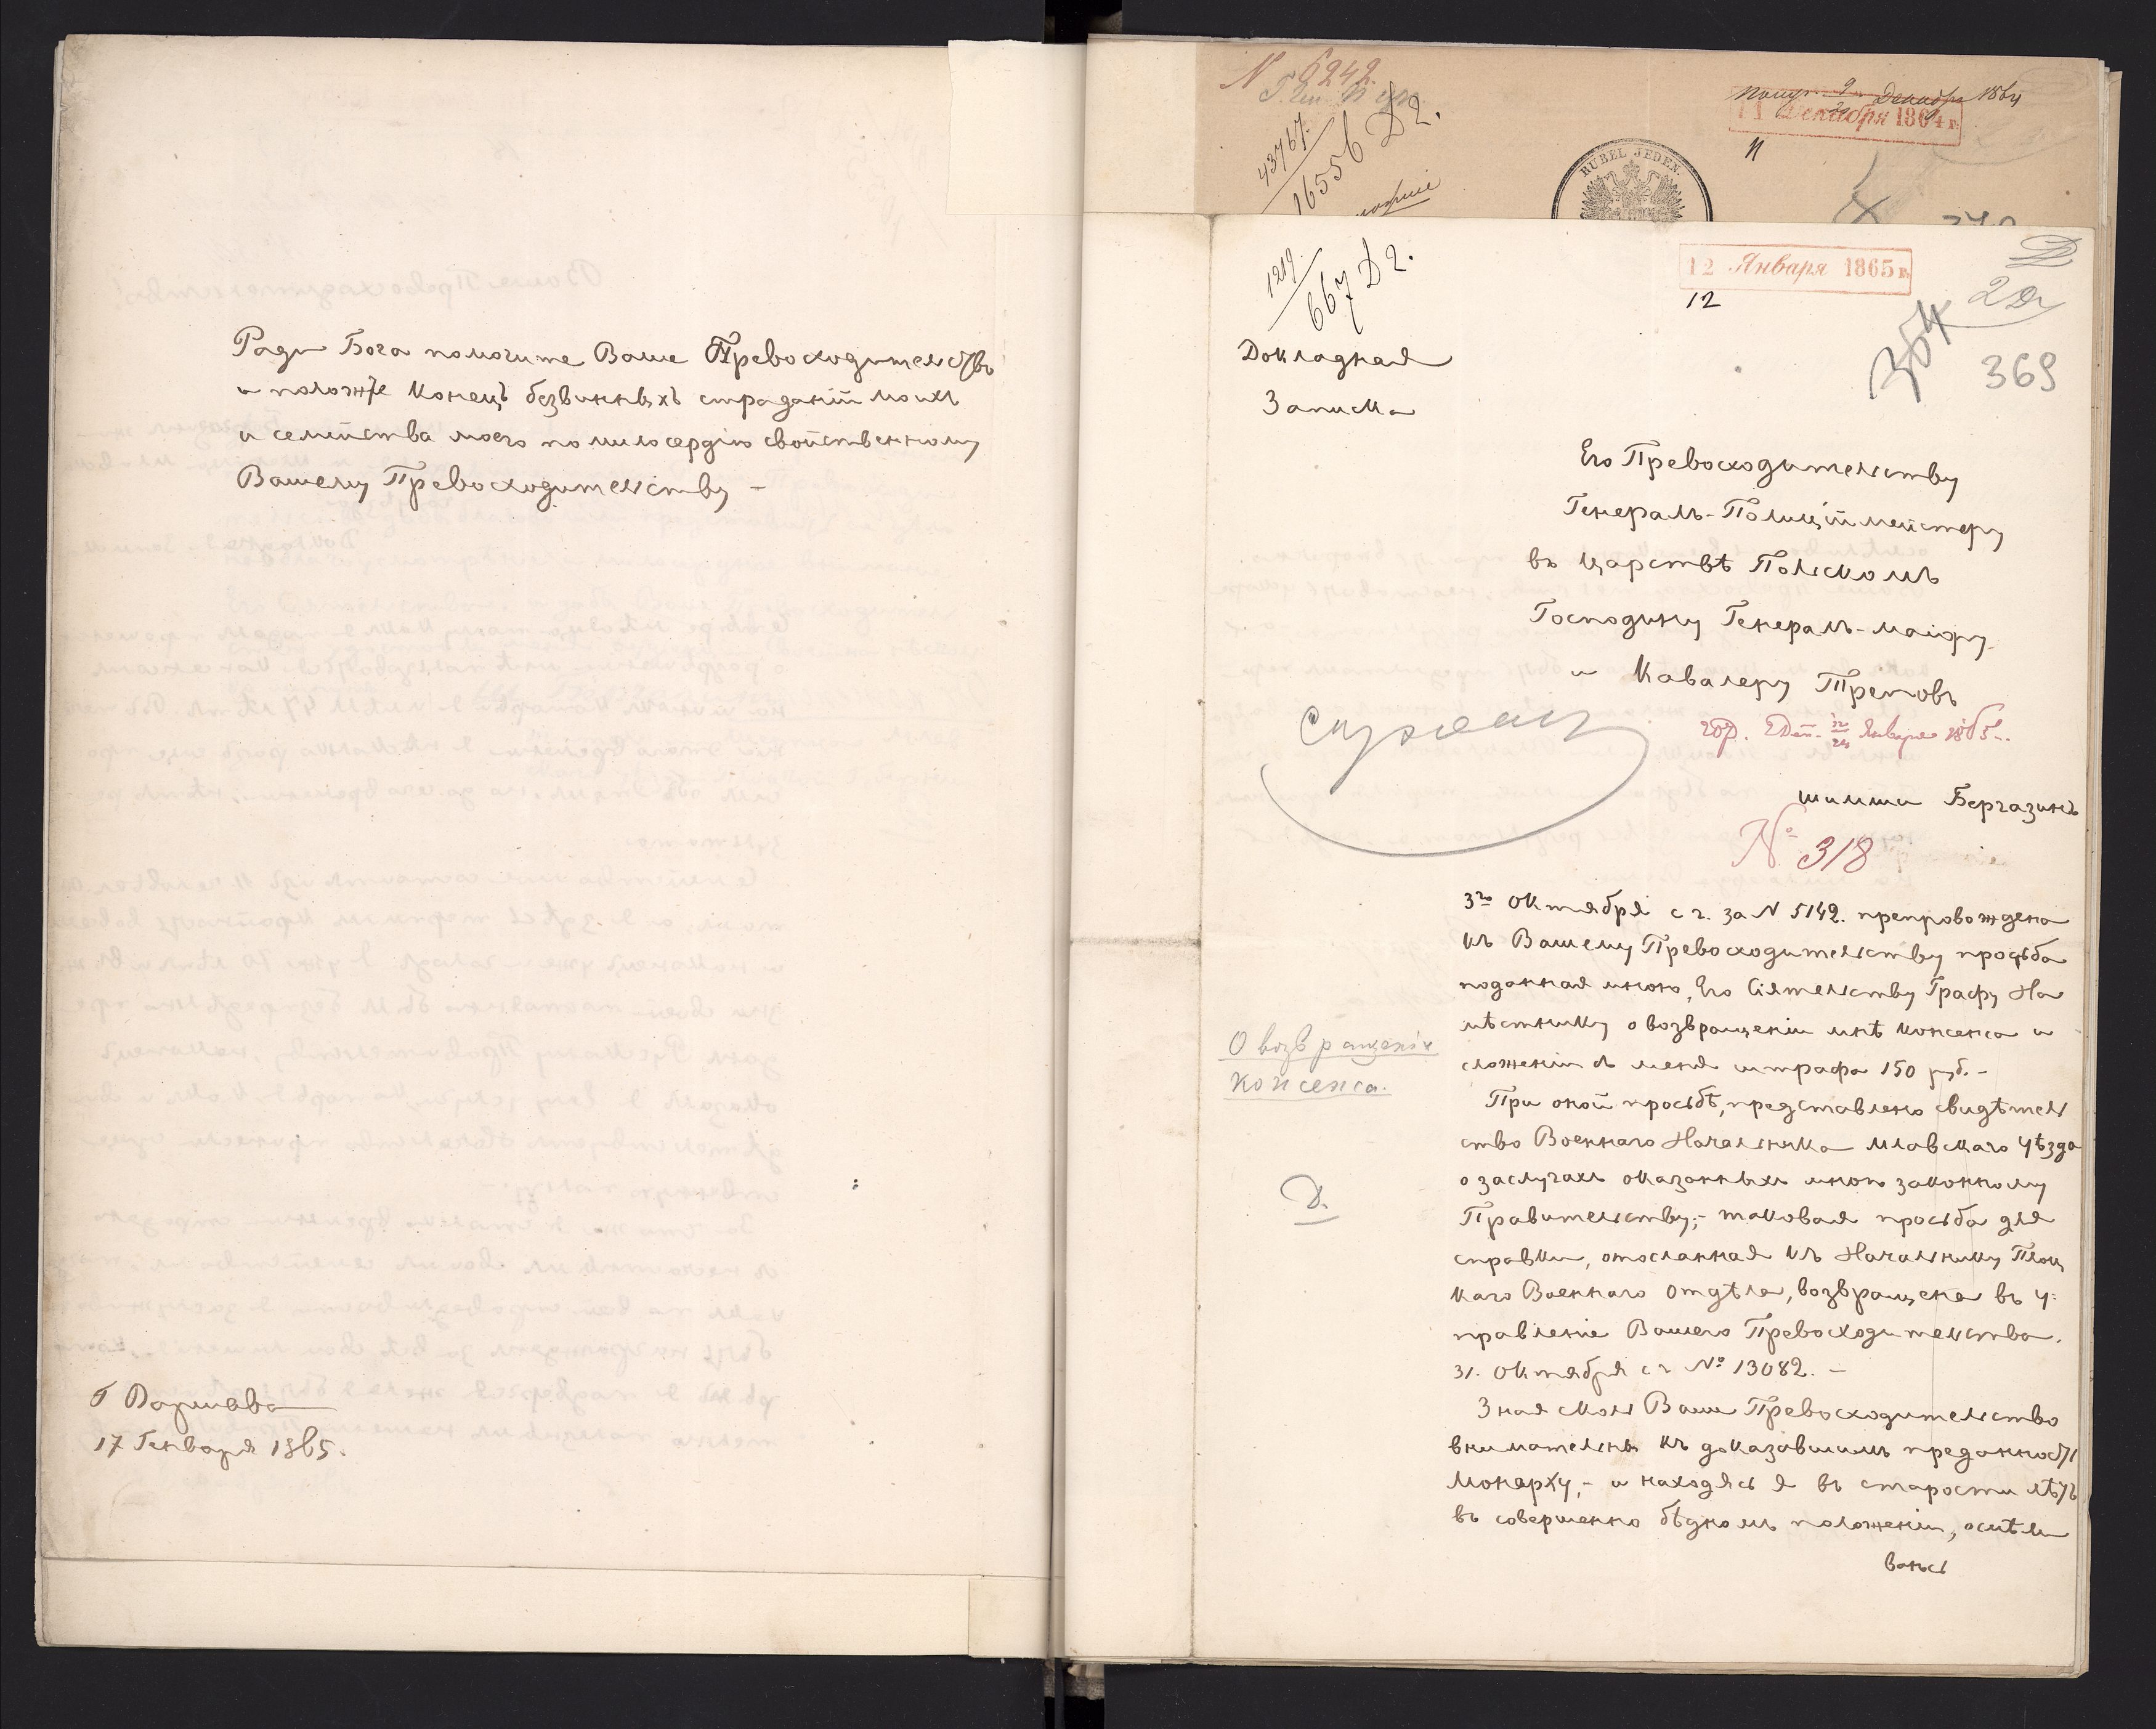 Ради Бога помогите Ваше Превосходительство
и положте конецъ безвинныхъ страданій моихъ
и семейства моего по милосердію свойственному
Вашему Превосходительству –
Г Варшава
17 Генваря 1865.
N 6242.
43767.
16556 Д2.
9 Декабря 1864
11 Декабря 1864 г.
11
RUBEL JEDEN.
1219.
667 Д2.
12 Января 1865 г.
12
364
369
Докладная
Записка
Его Превосходительству
Генералъ-Полиціймейстеру
въ Царствѣ Польскомъ
Господину Генералъ-маіору
и Кавалеру Треповъ
12/24 Января 1865
Бергазинъ
№ 318
3го Октября с г. за N 5142. препровождена
къ Вашему Превосходительству просьба
поданная мною, Его Сіятельству Графу На
мѣстнику о возвращеніи мнѣ консенса и
сложеніи съ меня штрафа 150 руб. –
О возвращеніи
консенса.
При оной просьбѣ, представлено свидѣтель
ство Военнаго Начальника Млавскаго Уѣзда
о заслугахъ оказанныхъ мною законному
Д.
Правительству; – таковая просьба для
справки, отосланная къ Начальнику Плоц
каго Военнаго Отдѣла, возвращена въ у-
правленіе Вашего Превосходительства.
31. Октября с г № 13082. –
Зная сколь Ваше Превосходительство
внимательны къ доказавшимъ преданность
Монарху, – и находясь я въ старости лѣтъ
въ совершенно бѣдномъ положеніи, осмѣли
ваюсь